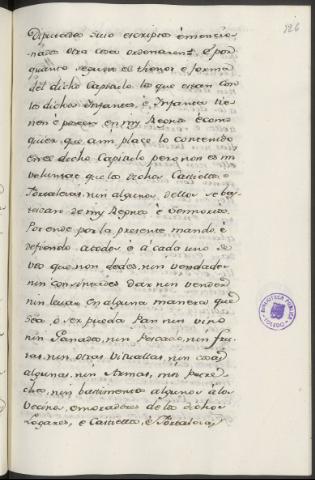 126
Diputados suso escriptos é mencio-
nados otra cosa ordenaren: é por
quanto segunt el thenor é forma
del dicho Capitulo los que estan con
los dichos Infantes, é Infanta tie-
nen é poseen en my Regno é como
quier que a mi place lo contenido
en el dicho Capitulo pero non es mi
voluntat que los dichos Castiellos é
Fortalezas nin algunos dellos se bas-
tezcan de my Regno é Sennorios
Por ende por la presente mando, é
defiendo a todos é á cada uno de
vos que non dedes, nin vendades
nin consintades dar nin vender
nin levar en alguna manera que
sea, ó ser pueda Pan nin vino
nin Ganados, nin Pescado, nin fru-
tas, nin otras Vituallas nin cosas
algunas, nin Armas, nin Pertre-
chos, nin bastimentos algunos á los
vecinos, é moradores de los dichos
Logares, é Castiellos, é Fortalezas,
BIBLIOTECA PUBLICA
TOLEDO